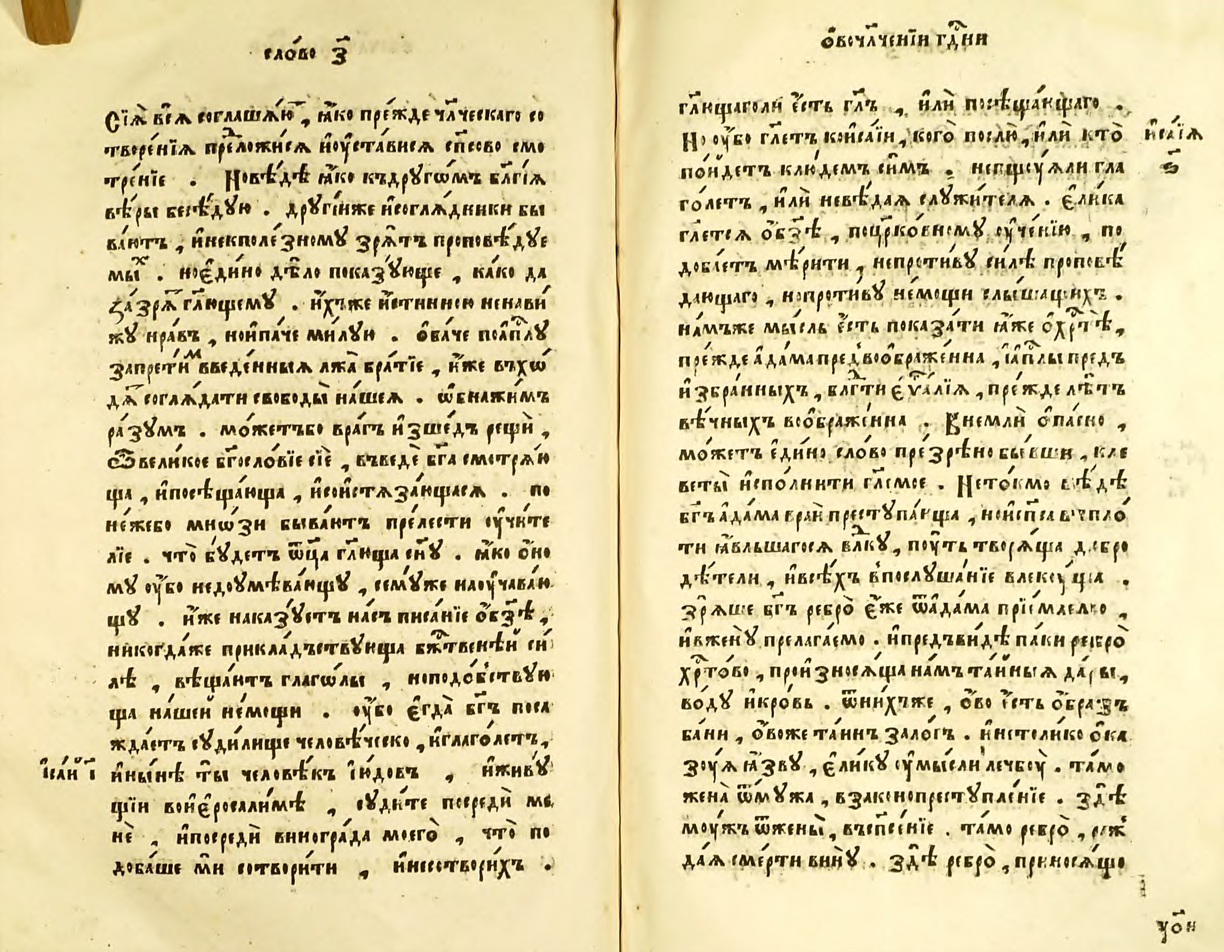 сло́во з҃
Сїѧ̀ всѧ̀ соглаша́ю, ꙗ҆́ко пре́жде чл҃ческаго со
творе́нїѧ преложи́сѧ и҆оу҆ста́висѧ сп҃сово смо
тре́нїе . Новѣ́дѣ ꙗ҆́ко къдрꙋгѡ́мъ бл҃гі́ѧ
вѣ́ры бесѣ́дꙋю . дрꙋгі́иже и҆согла́дники бы
ва́ютъ , и҆некполе́зномꙋ зрѧ́тъ проповѣ́дꙋе
мы́х . ное҆ди́но дѣ́ло пока́зꙋюще , ка́ко да
за́зрѧ́т гл҃ющемꙋ . и҆́хъже и҆́стинною ненави́
жꙋ нра́въ , нои҆па́че ми́лꙋю . ѻ҆ба́че поа҆пⷭ҇лꙋ
запрети́м введе́нныѧ лжа̀ бра́тїе , и҆́же въхѡ́
дѧ́т соглѧ́дати свободы̀ на́шеѧ . ѡ҆бнажи́мъ
ра́зꙋмъ . мо́жетъбо вра́гъ и҆зше́дъ рещѝ ,
ѿвели́кое бг҃осло́вїе сїѐ , въведѐ бг҃а смотрѧ́ю
ща , и҆посѣща́юща , и҆соистѧза́ющасѧ . по
не́жебо мно́зи быва́ютъ пре́лести оу҆чи́те
лїе . что̀ бꙋ́детъ ѻ҆ц҃а̀ гл҃юща сн҃ꙋ . ꙗ҆́ко ѻ҆но
мꙋ̀ оу҆́бо недоꙋмѣва́ющꙋ , семꙋ́же наоу҆чава́ю
щꙋ . и҆́же наказꙋ́етъ на́съ писа́нїе ѻ҆бз҃ѣ ,
никогда́же прикла́дъствꙋюща бжⷭ҇твенѣ́й си́
лѣ , вѣща́ютъ глаго́лы , ноподо́бствꙋю
ща на́шей не́мощи . оу҆́бо є҆гда̀ бг҃ъ поса
жда́етъ сꙋди́лище человѣ́ческо , и҆глаго́летъ ,
І҆са́їи і҃ и҆ны́нѣ ты̀ человѣ́къ і҆ю́довъ , и҆живꙋ́
щїи вои҆єрⷭ҇сали́мѣ , сꙋди́те посредѝ ме
нѐ , и҆посредѝ виногра́да моего̀ , что̀ по
доба́ше мѝ сотвори́ти , и҆несотвори́хъ .
ѻ҆вочл҃че́нїи гдⷭ҇ни
гл҃ющаголи є҆́сть гл҃ъ , и҆лѝ посѣща́ющаго .
Но оу҆́бо гл҃етъ кои҆са́їи , кого̀ послю̀ , и҆лѝ кто̀
и҆са́їѧ
ѕ҃
по́йдетъ клю́демъ си́мъ . непщꙋ́ѧли гла
го́летъ , и҆лѝ невѣ́даѧ слꙋжи́телѧ . є҆ли́ка
гл҃етсѧ ѻ҆бз҃ѣ , поцр҃ко́вномꙋ оу҆че́нїю , по
доба́етъ мѣ́рити , непроти́вꙋ си́лѣ проповѣ́
дающаго , нопроти́вꙋ не́мощи слы́шащихъ .
на́мъже мы́сль є҆́сть показа́ти ꙗ҆́же ѻ҆хрⷭ҇тѣ̀ ,
пре́жде а҆да́ма предвоѻбраже́нна , і҆а҆пⷭ҇лы предъ
и҆збра́нныхъ , влⷢ҇гти є҆ѵⷢ҇а́лїѧ , пре́жде лѣ́тъ
вѣ́чныхъ воѻбраже́нна . Внемлѝ ѻ҆па́сно ,
мо́жетъ є҆ди́но сло́во презрѣ́но бы́вши , кле
веты̀ и҆спо́лнити гл҃емое . Нето́кмо вѣ́дѣ
бг҃ъ а҆да́ма враѝ престꙋпа́юща , нои҆сп҃са впло́
ти ꙗ҆́вльшагосѧ влⷣкꙋ , пꙋ́ть творѧ́ща добро
дѣ́тели , и҆всѣ́хъ впослꙋша́нїе влекꙋ́ща .
зрѧ́ше бг҃ъ ребро̀ є҆́же ѿа҆да́ма прїе́млемо ,
и҆вженꙋ̀ прелага́емо . и҆предъви́дѣ па́ки ребро̀
хрⷭ҇то́во , произносѧ́ща на́мъ та́йныѧ да́ры ,
во́дꙋ и҆кро́вь . ѿни́хъже , ѻ҆́во є҆́сть ѻ҆́бразъ
ба́ни , ѻ҆во́же та́инъ зало́гъ . и҆нето́лико ѻ҆ка
зꙋ́ѧ ꙗ҆́звꙋ , є҆ли́кꙋ оу҆мы́сли лечбꙋ̀ . та́мо
жена̀ ѿмꙋ́жа , взаконопрестꙋпле́нїе . здѣ̀
мꙋ́жъ ѿжены̀ , въспⷭ҇е́нїе . та́мо ребро̀ , раж
да́ѧ сме́рти винꙋ̀ . здѣ̀ ребро̀ , приносѧ́що